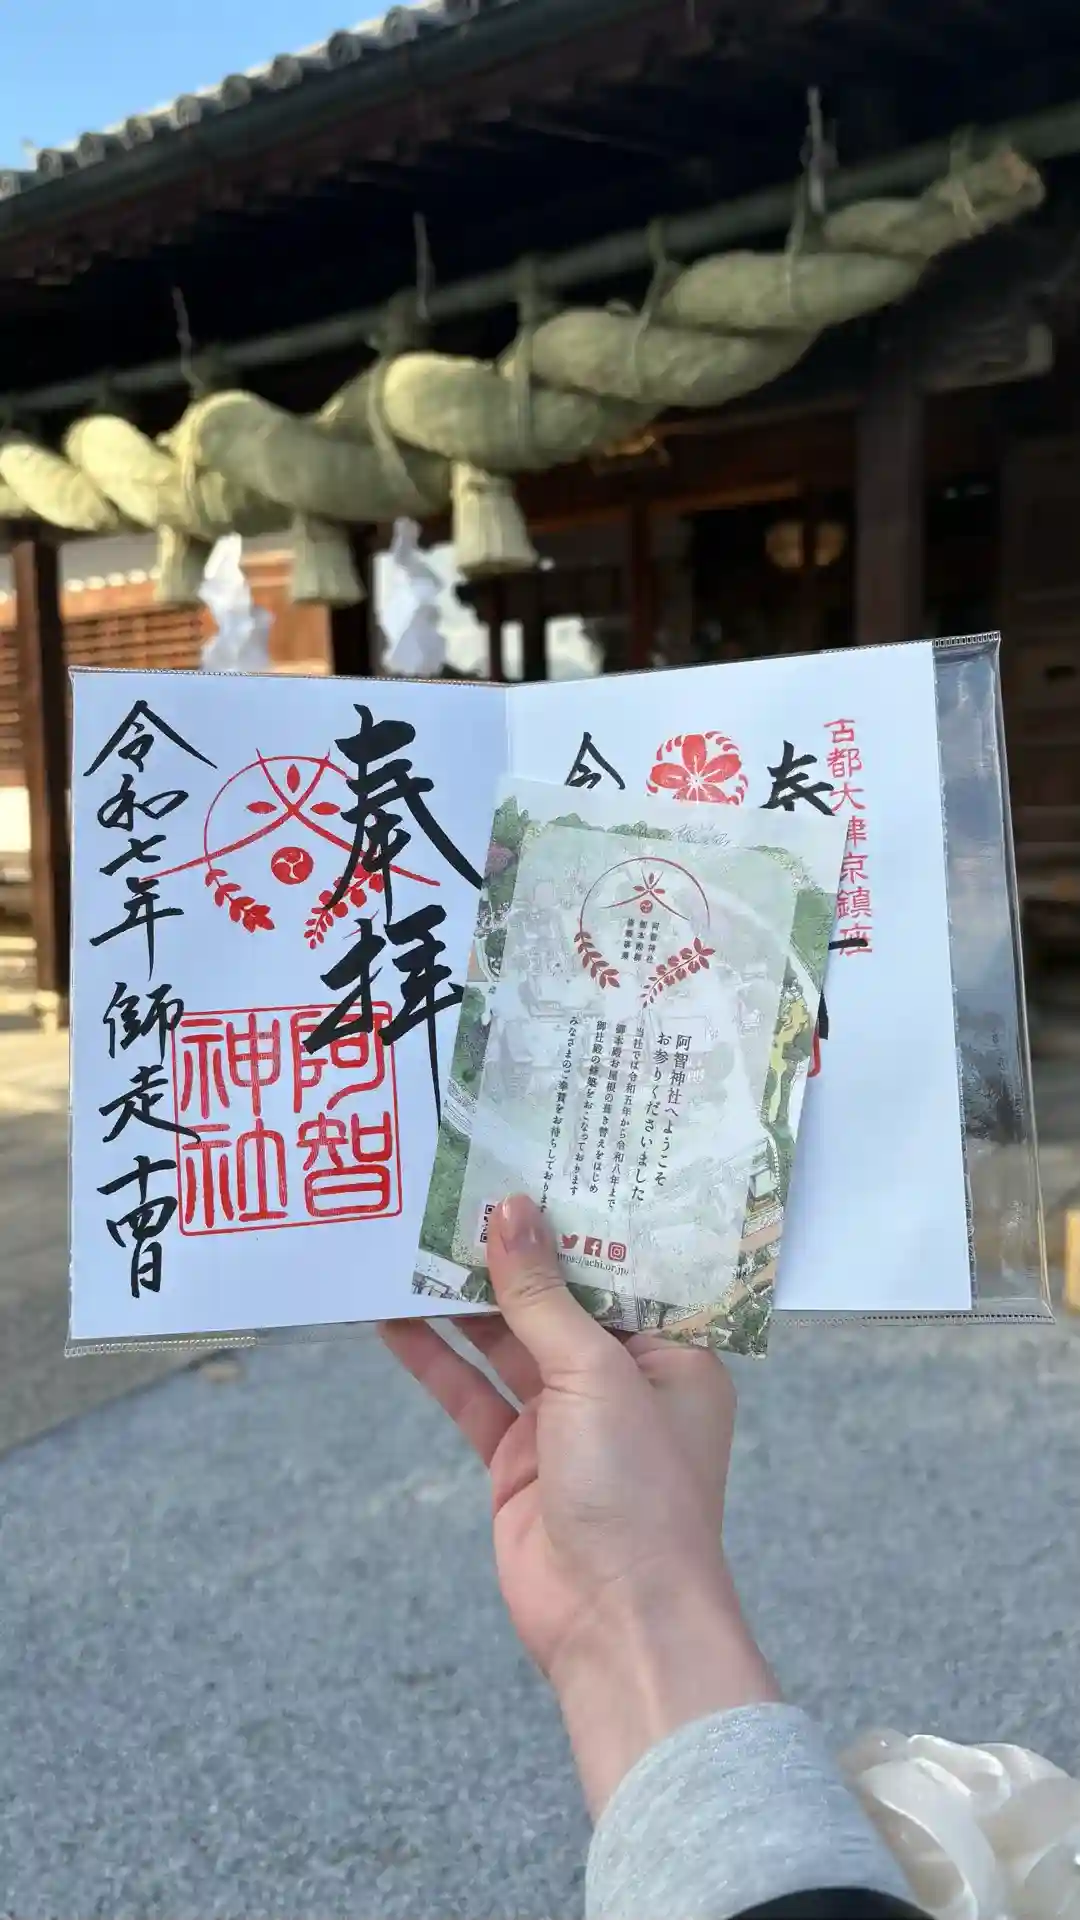 奉拝
阿智
神社
令和七年師走十四日
古都大津京鎮座
奉
令
阿智神社
御本殿他
修築事業
阿智神社へようこそ
お参りくださいました
当社では令和五年から令和八年まで
御本殿お屋根の葺き替えをはじめ
御社殿の修築をおこなっております
みなさまのご奉賛をお待ちしております
https://achi.or.jp/